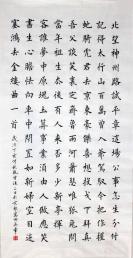 北望神州路試平章這場公事怎生分付
記得太行山百萬曾入宗爺駕馭今把作握
蛇騎虎君去京東豪傑喜想投戈下拜真
吾父談笑裏定齊魯兩河蕭瑟惟狐兔問
當年祖生去後有人來否多少新亭揮淚
客誰夢中原塊土算事業須由人做應笑
書生心膽怯向車中閉置如新婦空目送
塞鴻去金縷曲一首